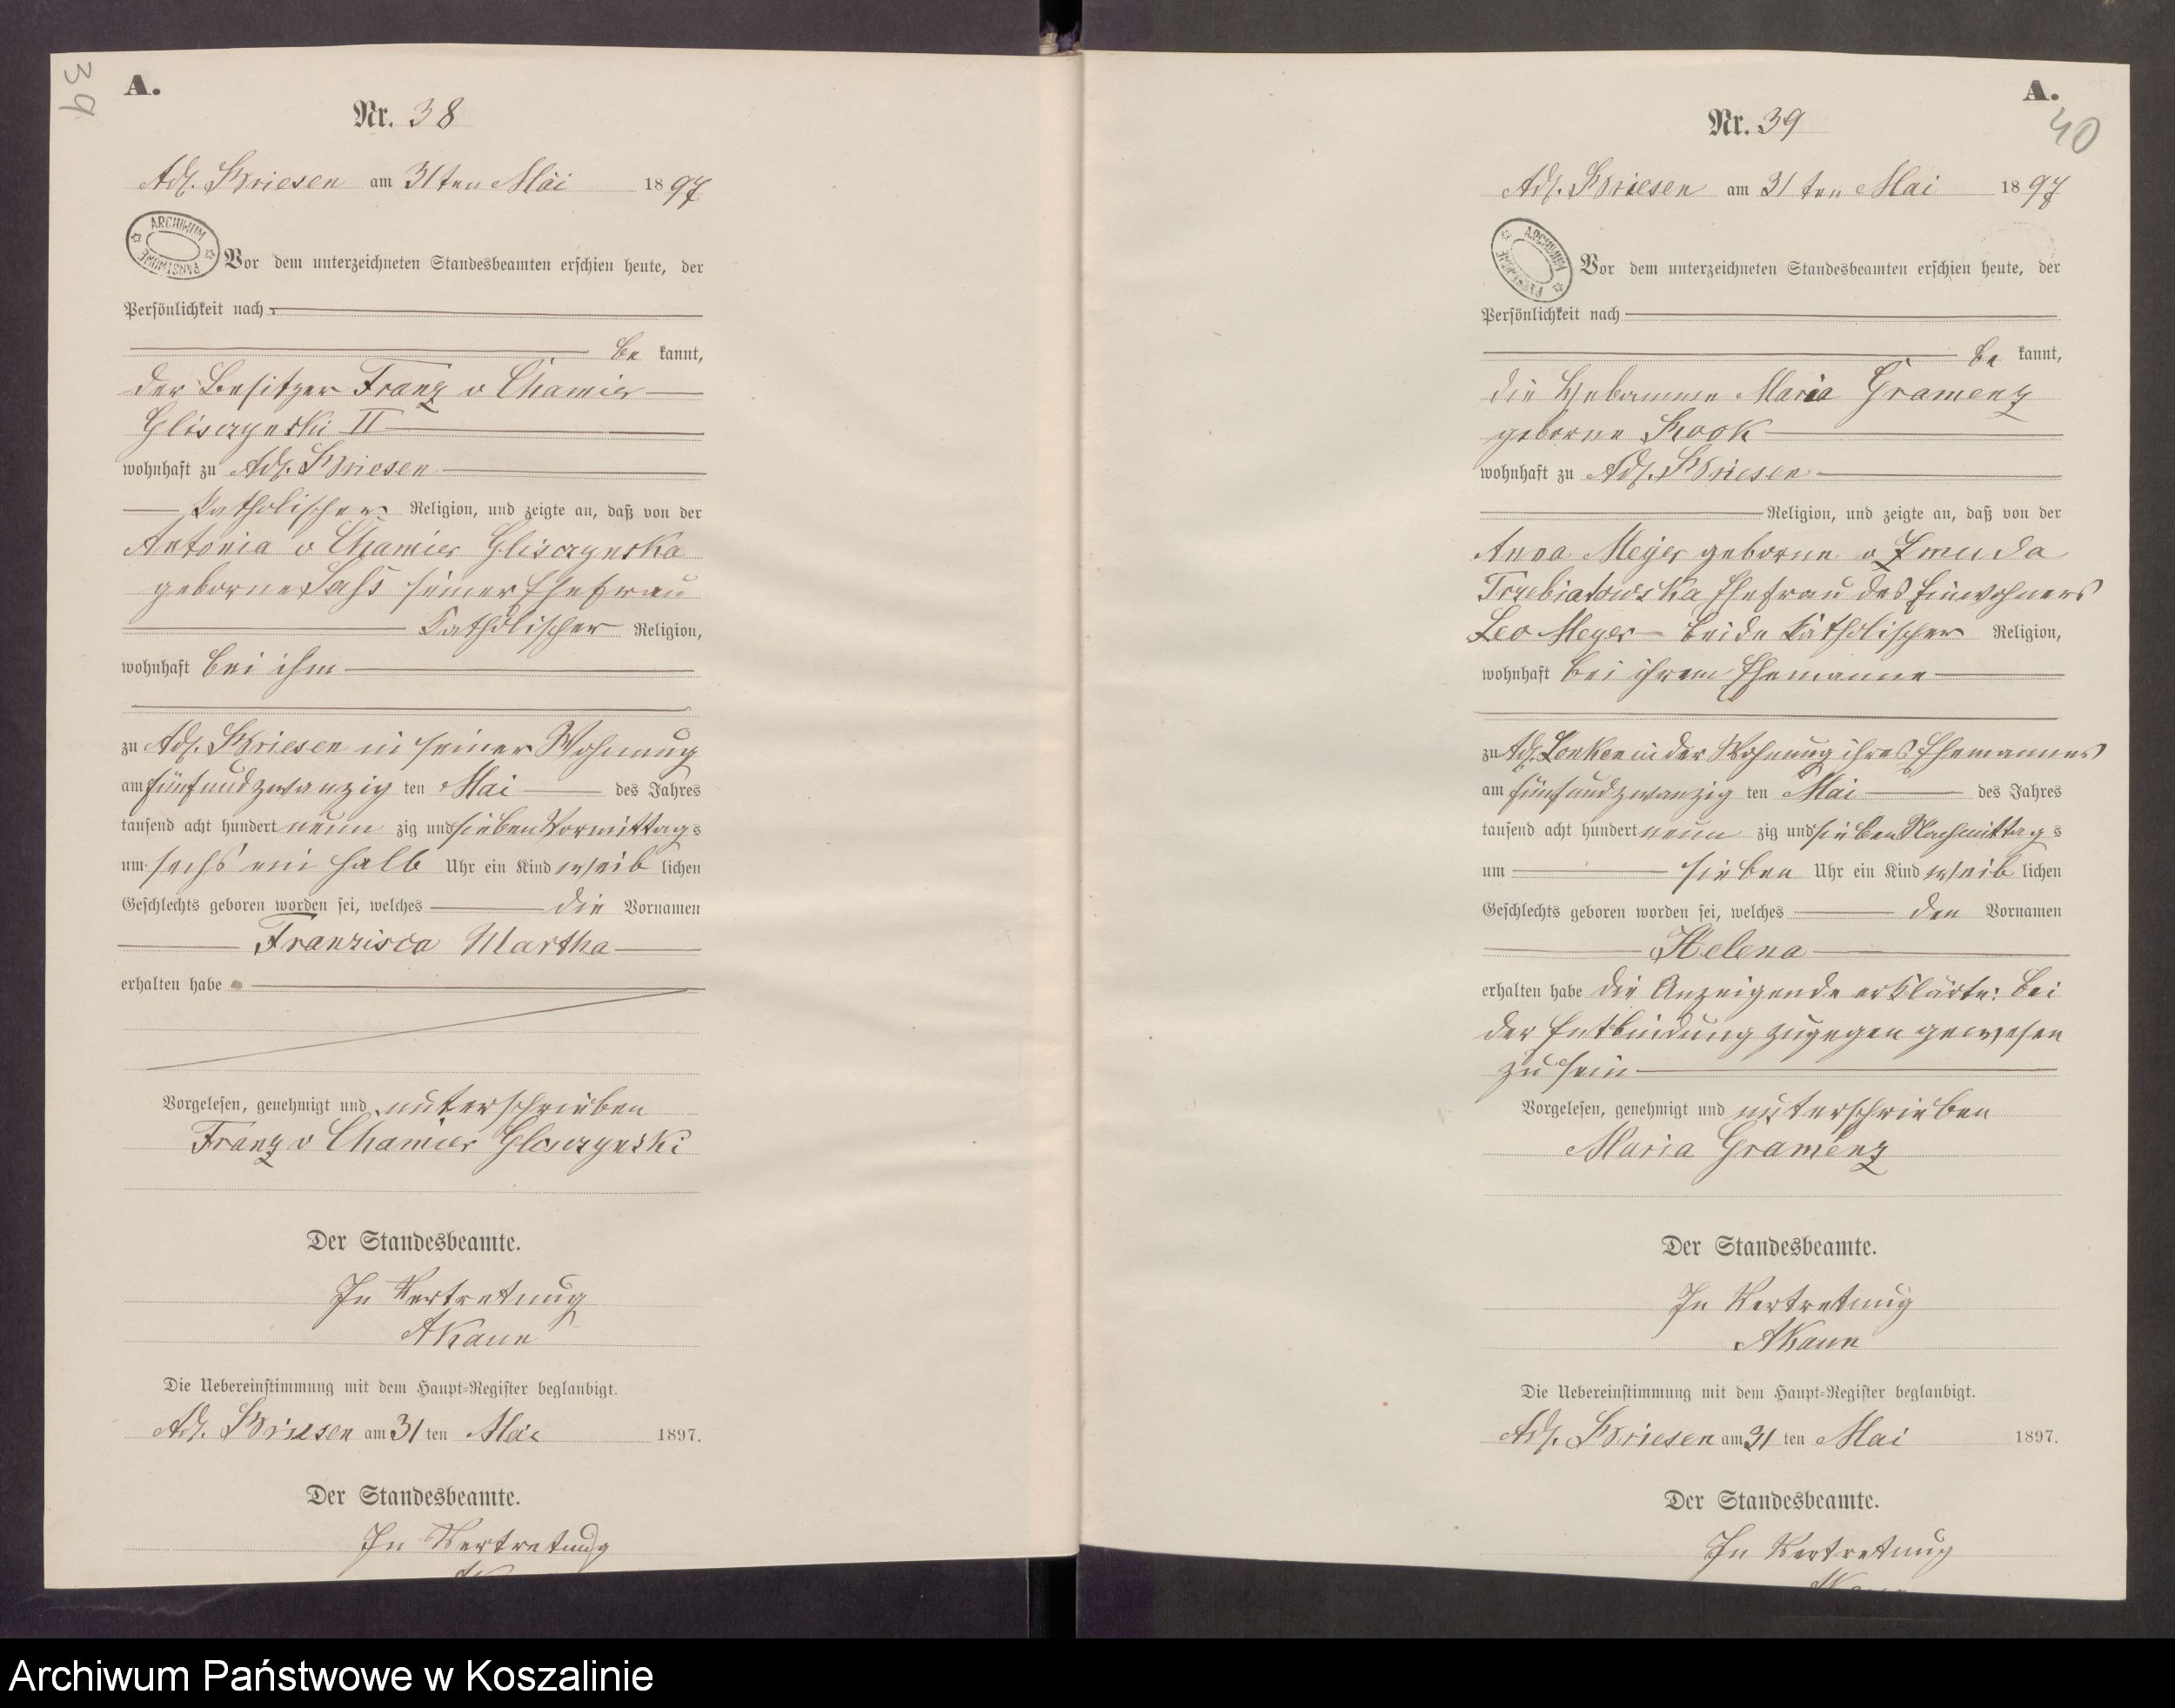 39
A.
Nr. 38
Adl. Briesen am 31ten Mai 1897
ARCHIWUM
PAŃSTWOWE
Vor dem unterzeichneten Standesbeamten erschien heute, der
Persönlichkeit nach
be kannt,
der Besitzer Franz v Chamier
Gliszczynski II
wohnhaft zu Adl. Briesen
katholischer Religion, und zeigte an, daß von der
Antonia v Chamier Gliszczynska
geborne Sass seiner Ehefrau
katholischer Religion,
wohnhaft bei ihm
zu Adl. Briesen in seiner Wohnung
am fünfundzwanzig ten Mai des Jahres
tausend acht hundert neun zig und sieben Vormittags
um sechs ein halb Uhr ein Kind weib lichen
Geschlechts geboren worden sei, welches die Vornamen
Franzisca Martha
erhalten habe
Vorgelesen, genehmigt und unterschrieben
Franz v Chamier Glisczynski
Der Standesbeamte.
In Vertretung
AKaun
Die Uebereinstimmung mit dem Haupt-Register beglaubigt.
Adl. Briesen am 31 ten Mai 1897.
Der Standesbeamte.
In Vertretung
A.
40
Nr. 39
Adl. Briesen am 31 ten Mai 1897
ARCHIWUM
PAŃSTWOWE
Vor dem unterzeichneten Standesbeamten erschien heute, der
Persönlichkeit nach
be kannt,
die Hebamme Maria Gramenz
geborne Kook
wohnhaft zu Adl. Briesen
Religion, und zeigte an, daß von der
Anna Meyer geborne v Zmuda
Trzebiatowska Ehefrau des Einwohners
Leo Meyer beide katholischer Religion,
wohnhaft bei ihrem Ehemanne
zu Adl. Lonken in der Wohnung ihres Ehemannes
am fünfundzwanzig ten Mai des Jahres
tausend acht hundert neun zig und sieben Nachmittags
um sieben Uhr ein Kind weib lichen
Geschlechts geboren worden sei, welches den Vornamen
Helena
erhalten habe die Anzeigende erklärte: bei
der Entbindung zugegen gewesen
zu sein
Vorgelesen, genehmigt und unterschrieben
Maria Gramenz
Der Standesbeamte.
In Vertretung
AKaun
Die Uebereinstimmung mit dem Haupt-Register beglaubigt.
Adl. Briesen am 31 ten Mai 1897.
Der Standesbeamte.
In Vertretung
Archiwum Państwowe w Koszalinie